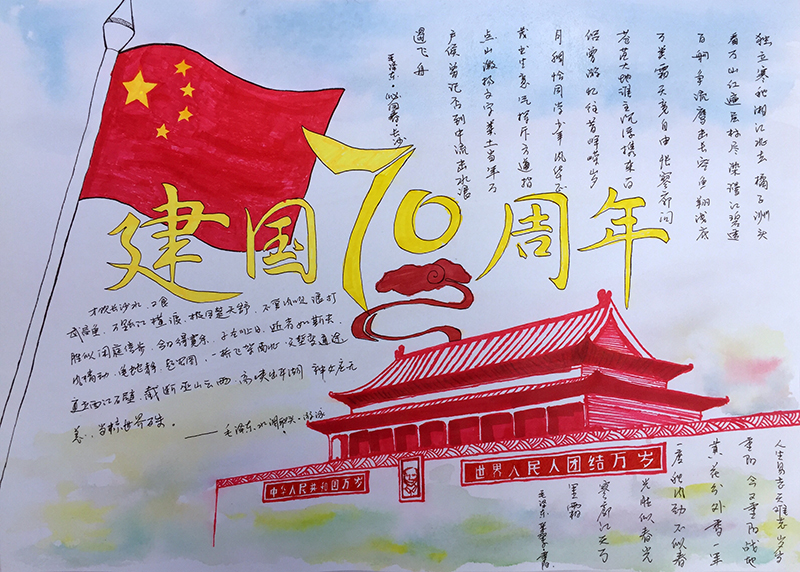 建国70周年
独立寒秋湘江北去橘子洲头
看万山红遍层林尽染漫江碧透
百舸争流鹰击长空鱼翔浅底
万类霜天竞自由怅寥廓问
苍茫大地谁主沉浮携来百
侣曾游忆往昔峥嵘岁
月稠恰同学少年风华正
茂书生意气挥斥方遒指
点山激扬文字粪土当年万
户侯曾记否到中流击水浪
遏飞舟
毛泽东 沁园春 长沙
才饮长沙水，又食
武昌鱼，万里长江横渡，极目楚天舒，不管风吹浪打
胜似闲庭信步，今日得宽余，子在川上曰，逝者如斯夫
风樯动，龟蛇静，起宏图，一桥飞架南北，天堑变通途
更立西江石壁，截断巫山云雨，高峡出平湖 神女应无
恙，当惊世界殊。
——毛泽东水调歌头·游泳
中华人民共和国万岁
世界人民大团结万岁
人生易老天难老岁岁
重阳今又重阳战地
黄花分外香一年
一度秋风劲不似春
光胜似春光
寥廓江天万
里霜
毛泽东